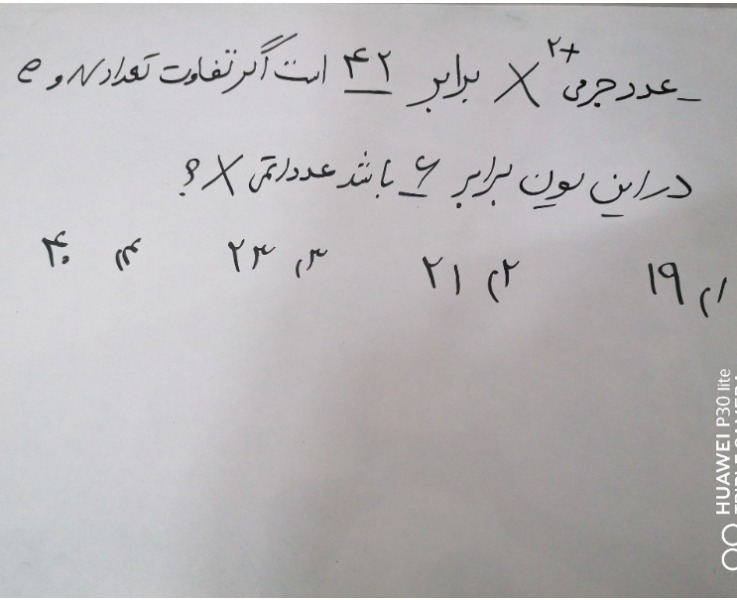 _ عدد جرمی X²⁺ برابر ۴۲ است اگر تفاوت تعداد N و e
در این یون برابر ۶ باشد عدد اتمی X ؟
۱) ۱۹ ۲) ۲۱ ۳) ۲۳ ۴) ۴۰
HUAWEI P30 lite
TRIPLE CAMERA